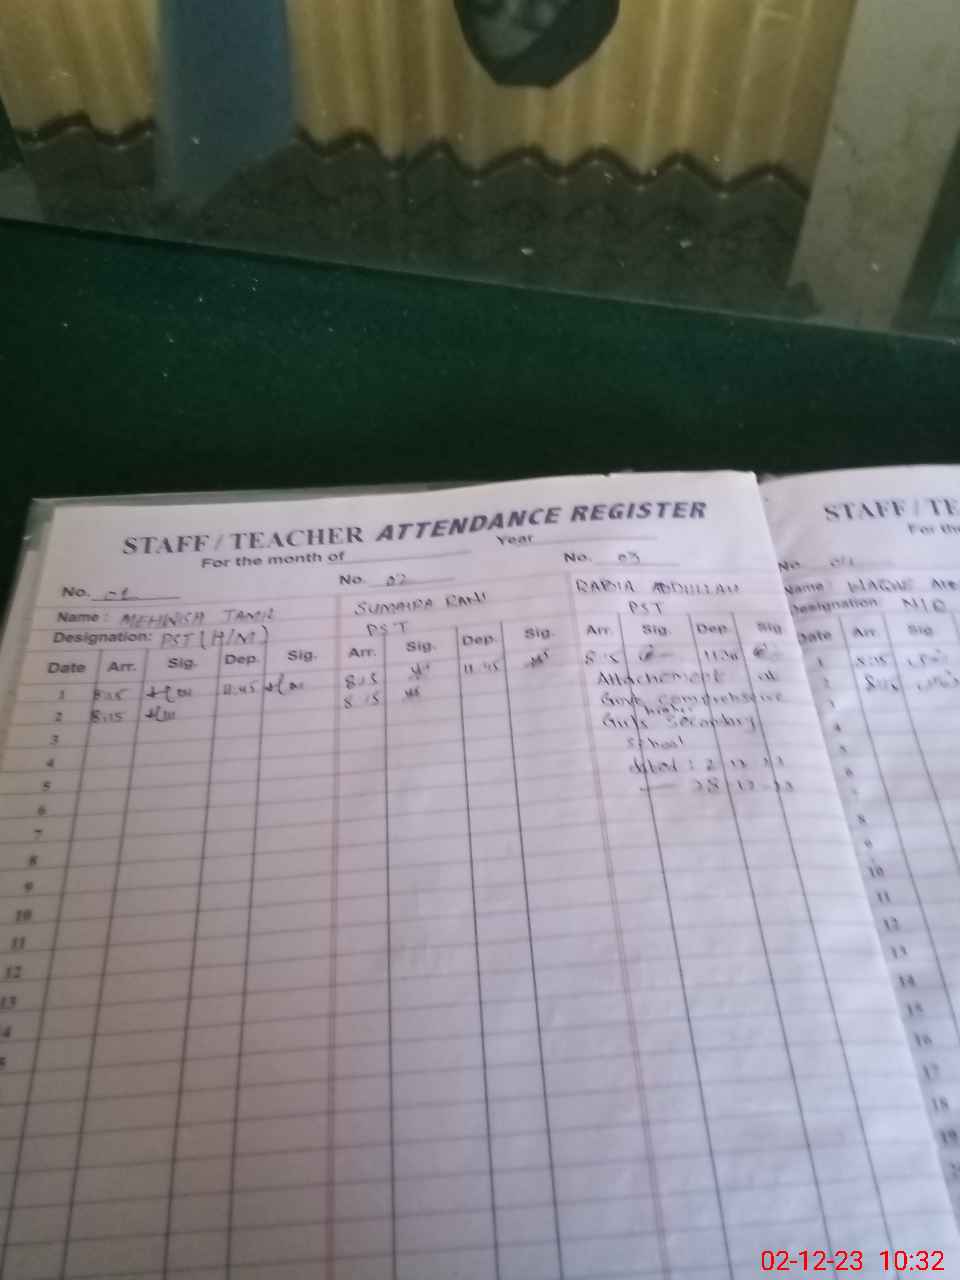 STAFF / TEACHER ATTENDANCE REGISTER
For the month of Year
No. 01 No. 02 No. 03
Name: MEHWISH JAMIL SUMAIRA RANI RABIA ABDULLAH
Designation: PST (H/M) PST PST
Date Arr. Sig. Dep. Sig. Arr. Sig. Dep. Sig. Arr. Sig. Dep. Sig.
1 8:15 11:45 8:15 11:45 8:15 11:30
2 8:15 8:15 Attachement at
3 Govt comprehensive
4 Girls higher Secondary
5 School
6 dated: 2 12
7 28 12
8
9
10
11
12
13
4
5
STAFF / TE
For th
No. 04
Name:
Designation
Date Arr. Sig.
1 8:15
2 8:15
3
4
5
6
7
8
9
10
11
12
13
14
15
16
17
18
19
02-12-23 10:32